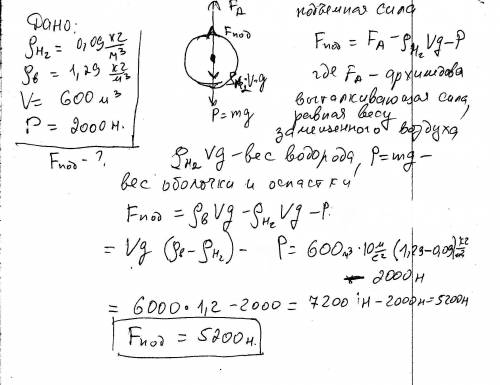 Дано:
ρH₂ = 0,09 кг/м³
ρв = 1,29 кг/м³
V = 600 м³
P = 2000 н.
Fпод - ?
FA
Fпод
ρH₂·V·g
P = mg
подъемная сила
Fпод = FA - ρH₂Vg - P
где FA - архимедова
выталкивающая сила,
равная весу
замещенного воздуха
ρH₂Vg - вес водорода, P = mg -
вес оболочки и оснастки
Fпод = ρвVg - ρH₂Vg - P.
= Vg (ρв - ρH₂) - P = 600 м³·10 м/с² (1,29 - 0,09) кг/м³
- 2000 н
= 6000·1,2 - 2000 = 7200 н - 2000 н = 5200 н
Fпод = 5200 н.